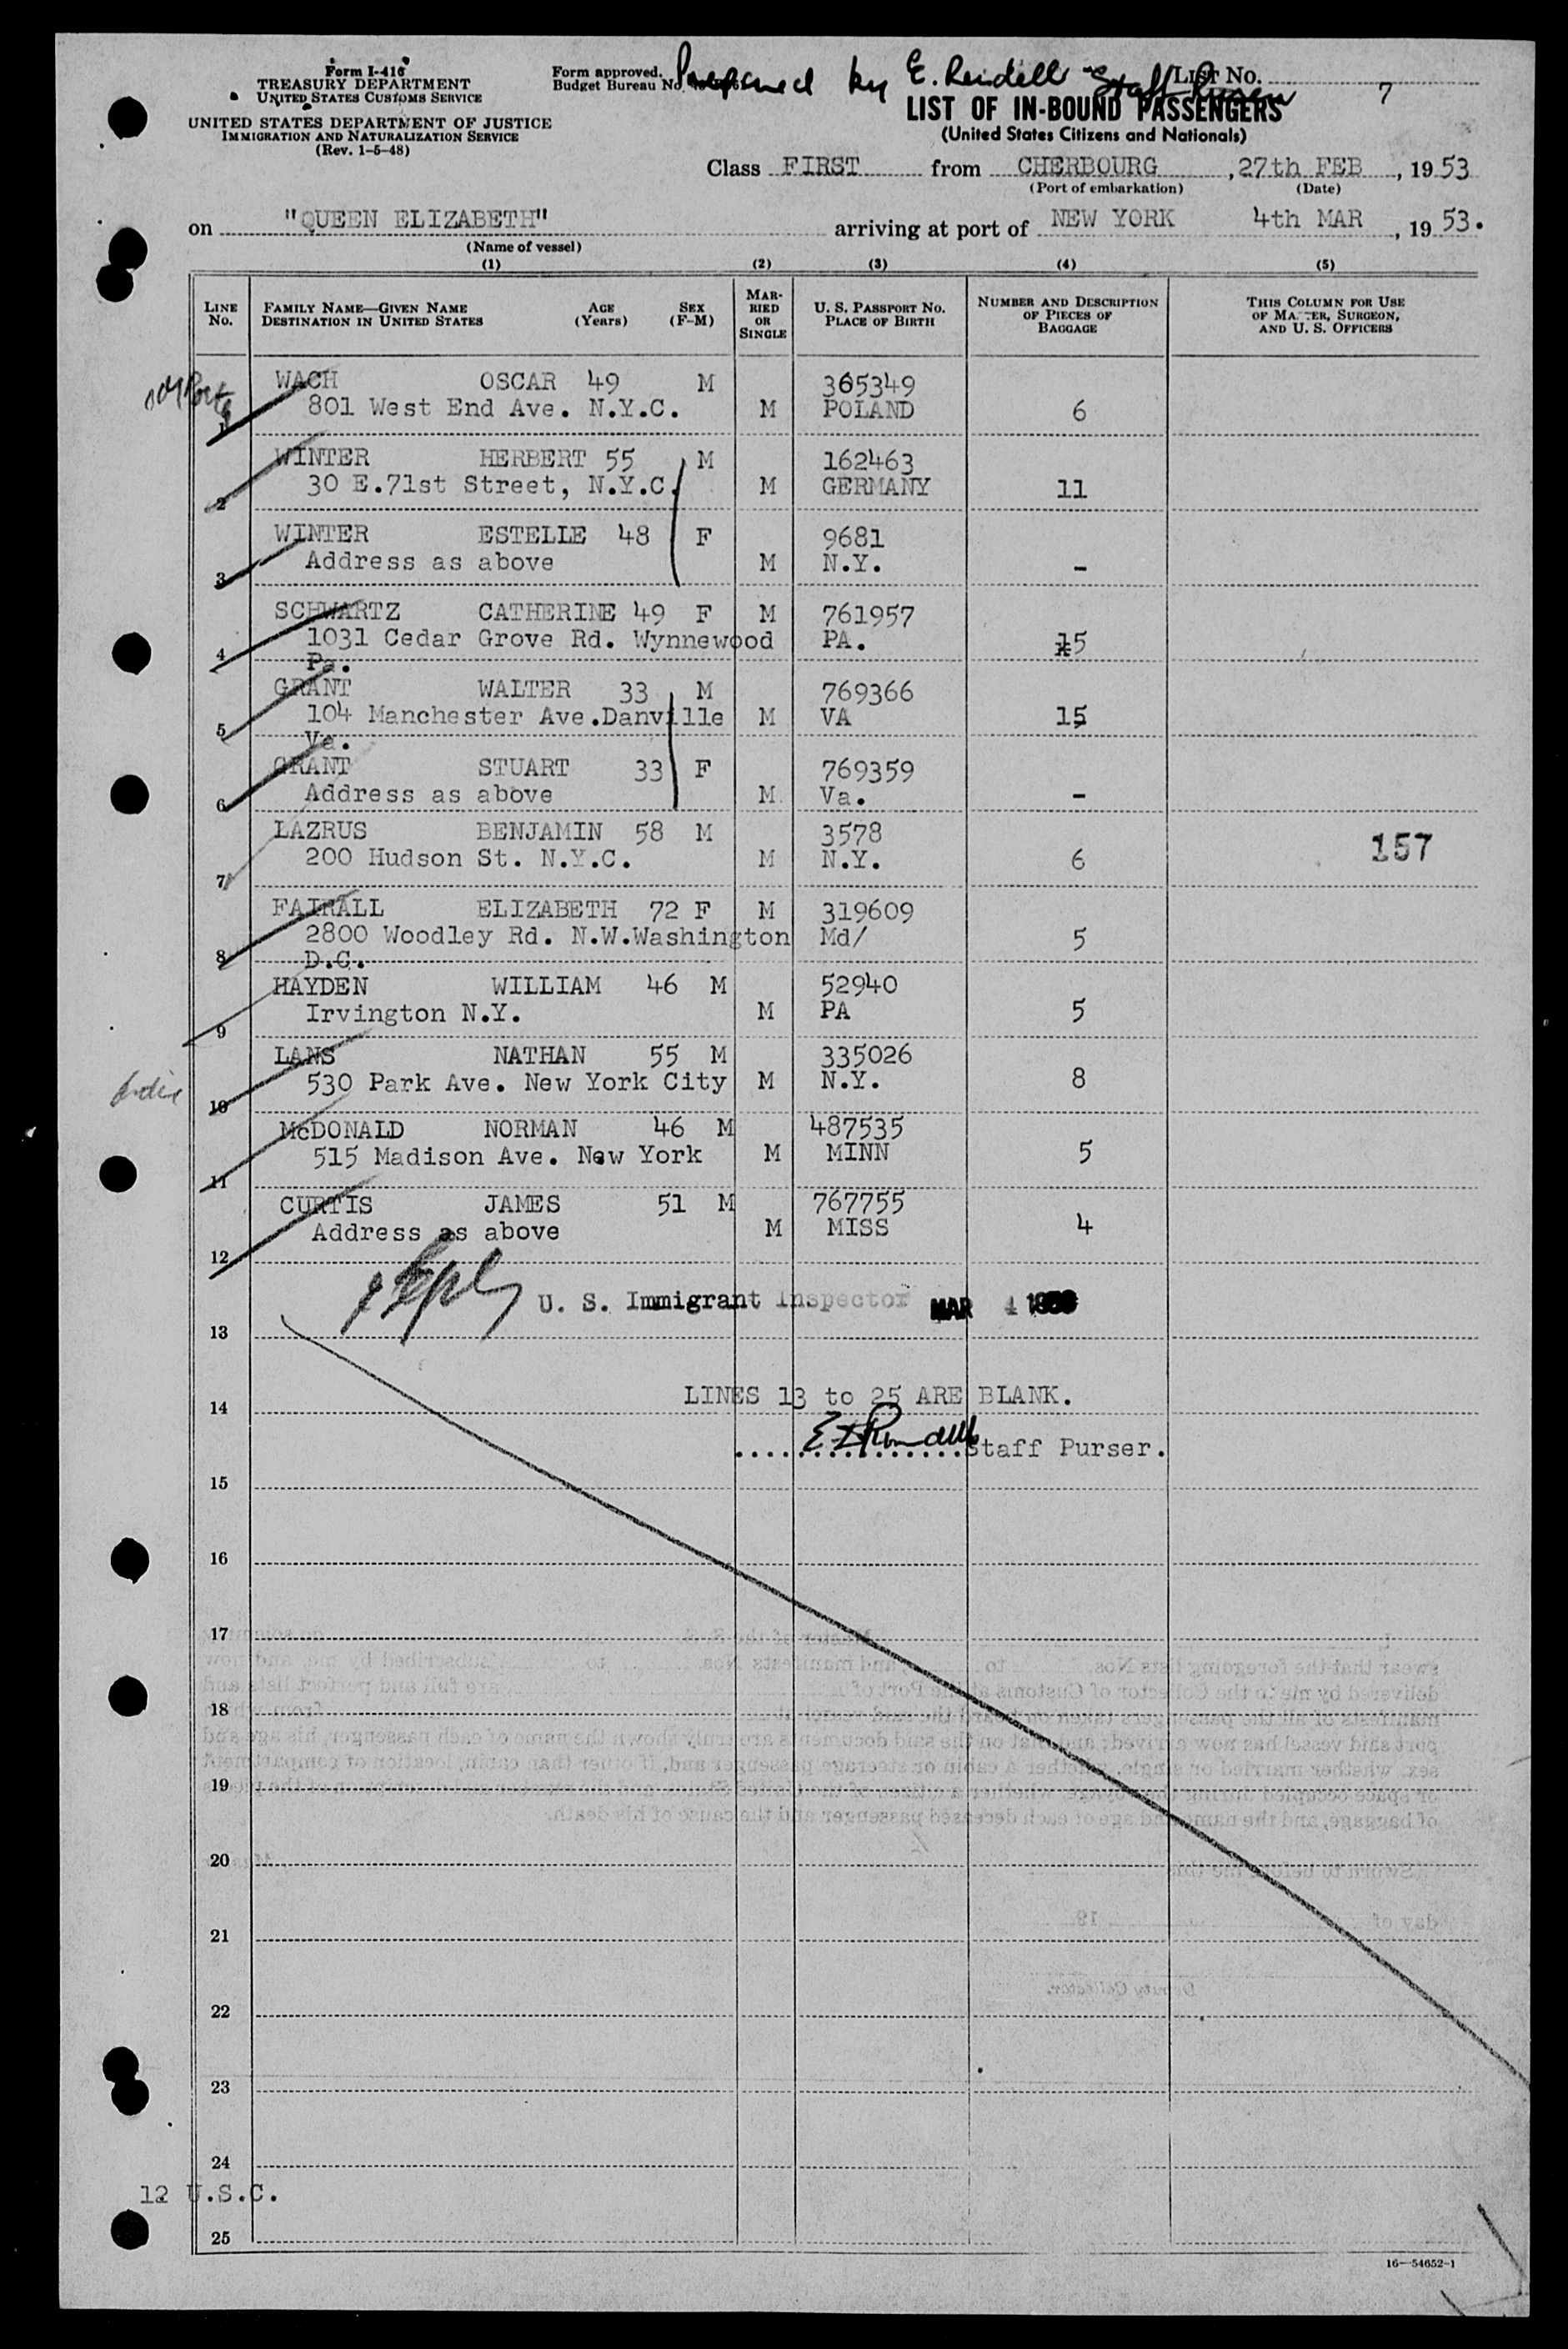 Form I-416
TREASURY DEPARTMENT
UNITED STATES CUSTOMS SERVICE
UNITED STATES DEPARTMENT OF JUSTICE
IMMIGRATION AND NATURALIZATION SERVICE
(Rev. 1-5-48)
Form approved.
Budget Bureau No.
Prepared by E. Rendell Staff Purser
List No. 7
LIST OF IN-BOUND PASSENGERS
(United States Citizens and Nationals)
Class FIRST from CHERBOURG, 27th FEB, 1953
(Port of embarkation) (Date)
on "QUEEN ELIZABETH" arriving at port of NEW YORK 4th MAR, 1953.
(Name of vessel)
(1) (2) (3) (4) (5)
LINE No. FAMILY NAME—GIVEN NAME DESTINATION IN UNITED STATES AGE (Years) SEX (F-M) MARRIED OR SINGLE U. S. PASSPORT No. PLACE OF BIRTH NUMBER AND DESCRIPTION OF PIECES OF BAGGAGE THIS COLUMN FOR USE OF MASTER, SURGEON, AND U. S. OFFICERS
WACH OSCAR 49 M 365349
1 801 West End Ave. N.Y.C. M POLAND 6
WINTER HERBERT 55 M 162463
2 30 E.71st Street, N.Y.C. M GERMANY 11
WINTER ESTELLE 48 F 9681
3 Address as above M N.Y. -
SCHWARTZ CATHERINE 49 F M 761957
4 1031 Cedar Grove Rd. Wynnewood PA. 15
Pa.
GRANT WALTER 33 M 769366
5 104 Manchester Ave.Danville M VA 15
Va.
GRANT STUART 33 F 769359
6 Address as above M Va. -
LAZRUS BENJAMIN 58 M 3578
7 200 Hudson St. N.Y.C. M N.Y. 6 157
FAIRALL ELIZABETH 72 F M 319609
8 2800 Woodley Rd. N.W.Washington Md/ 5
D.C.
HAYDEN WILLIAM 46 M 52940
9 Irvington N.Y. M PA 5
LANS NATHAN 55 M 335026
10 530 Park Ave. New York City M N.Y. 8
McDONALD NORMAN 46 M 487535
11 515 Madison Ave. New York M MINN 5
CURTIS JAMES 51 M 767755
12 Address as above M MISS 4
U. S. Immigrant Inspector MAR 4 1953
13
LINES 13 to 25 ARE BLANK.
14
E Rendell Staff Purser.
15
16
17
18
19
20
21
22
23
24
12 U.S.C.
25
16—54652-1